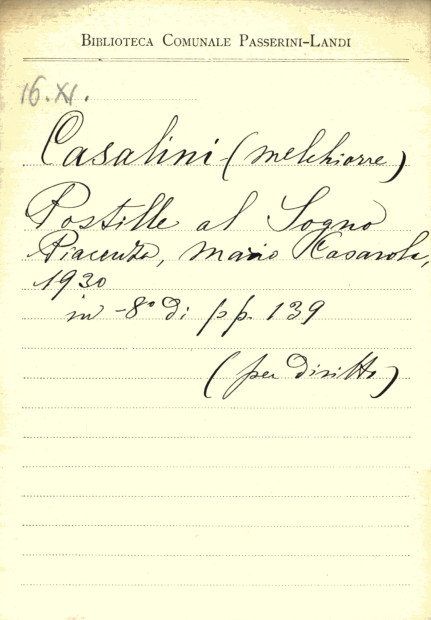 BIBLIOTECA COMUNALE PASSERINI-LANDI
16.XI.
Casalini (Melchiorre)
Postille al Sogno
Piacenza, Mario Casarola,
1930
in-8º di pp. 139
(per diritto)